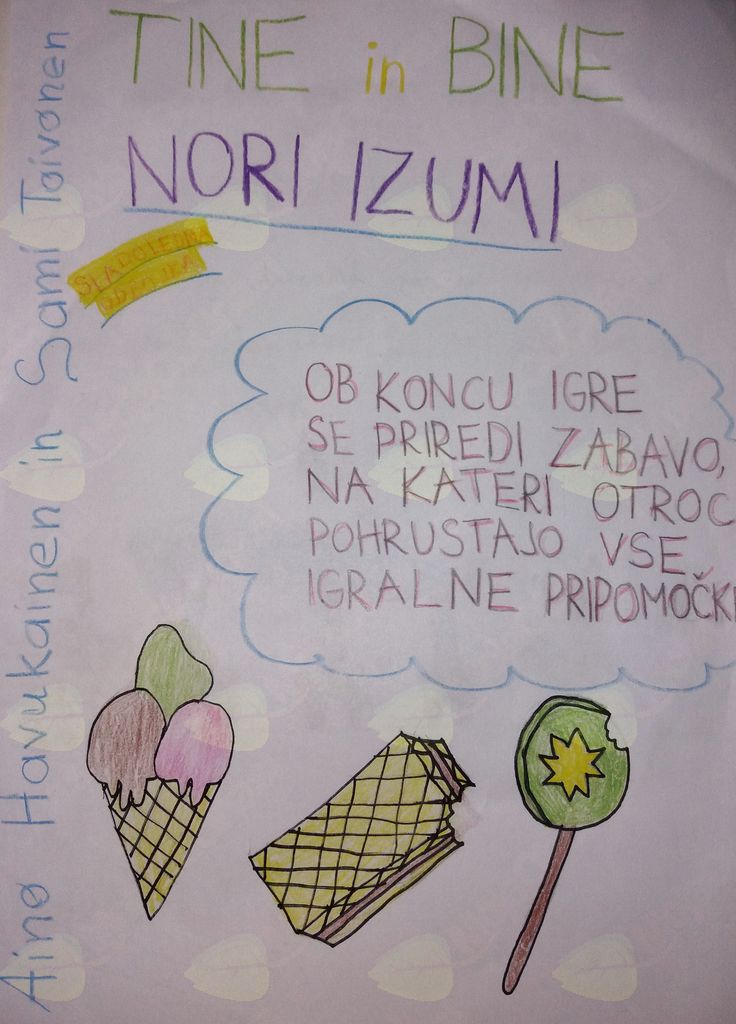 TINE in BINE
NORI IZUMI
Aino Havukainen in Sami Toivonen
OB KONCU IGRE
SE PRIREDI ZABAVO,
NA KATERI OTROC
POHRUSTAJO VSE
IGRALNE PRIPOMOČKI